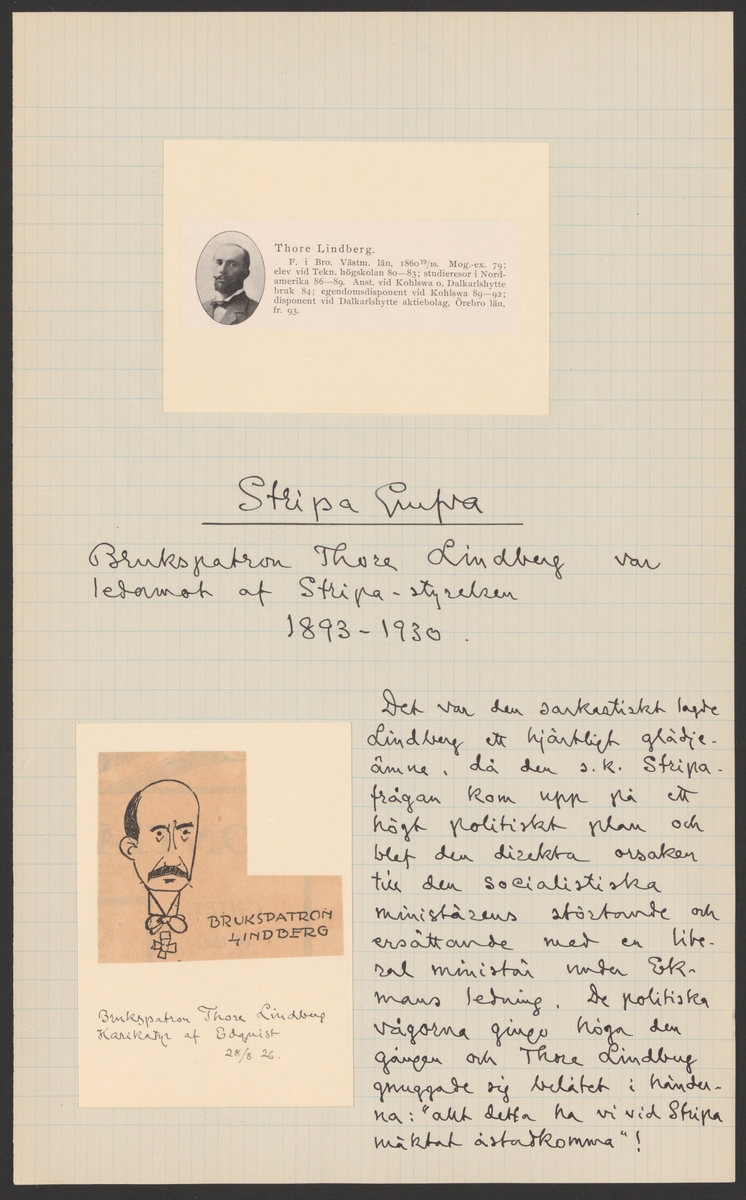 Thore Lindberg.
F. i Bro. Västm. län, 1860 19/10. Mog.-ex. 79;
elev vid Tekn. högskolan 80—83; studieresor i Nord-
amerika 86—89. Anst. vid Kohlswa o. Dalkarlshytte
bruk 84; egendomsdisponent vid Kohlswa 89—92;
disponent vid Dalkarlshytte aktiebolag, Örebro län,
fr. 93.
Stripa Grufva
Brukspatron Thore Lindberg var
ledamot af Stripa-styrelsen
1893-1930.
Det var den sarkastiskt lagde
Lindberg ett hjärtligt glädje-
ämne, då den s.k. Stripa-
frågan kom upp på ett
högt politiskt plan och
blef den direkta orsaken
till den socialistiska
ministärens störtande och
ersättande med en libe-
ral ministär under Ek-
mans ledning. De politiska
vågorna gingo höga den
gången och Thore Lindberg
gnuggade sig belåtet i händer-
na: "allt detta ha vi vid Stripa
mäktat åstadkomma"!
BRUKSPATRON
LINDBERG
Brukspatron Thore Lindberg
Karikatyr af Edquist
28/8 26.